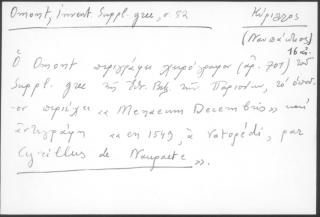 Omont, Invent. Suppl. grec, σ. 82
Κύριλλος
(Ναυπάκτιος)
16 αι.
Ὁ Omont περιγράφει χειρόγραφον (ἀρ. 701) τοῦ
Suppl. grec τῆς Ἐθν. Βιβ. τῶν Παρισίων, τὸ ὁποῖ-
ον περιέχει «Menaeum Decembris» καὶ
ἀντεγράφη «en 1549, à Vatopédi, par
Cyrillus de Naupacte».